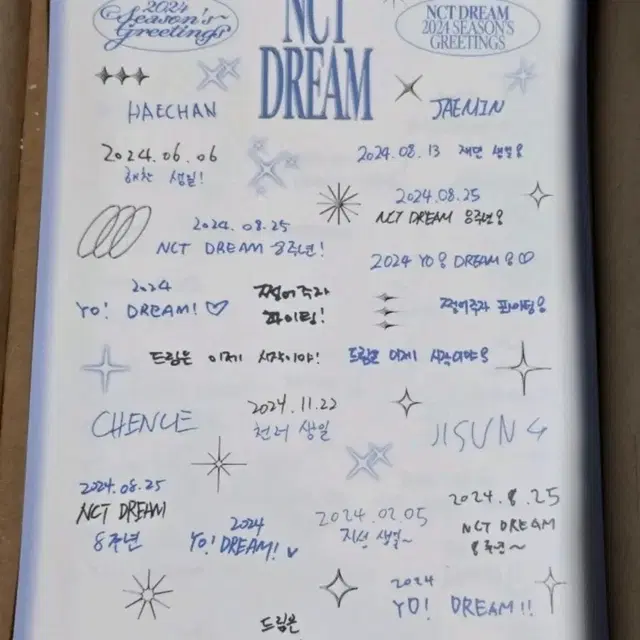 2024
Season's
Greetings
NCT
DREAM
NCT DREAM
2024 SEASON'S
GREETINGS
HAECHAN
2024.06.06
해찬 생일!
2024.08.25
NCT DREAM 8주년!
2024
YO! DREAM! ♡
쩔어주자
파이팅!
드림은 이제 시작이야!
JAEMIN
2024.08.13 재민 생일
2024.08.25
NCT DREAM 8주년
2024 YO DREAM ♡
쩔어주자 파이팅
드림은 이제 시작이야
CHENLE
2024.11.22
천러 생일
2024.08.25
NCT DREAM
8주년
2024
YO! DREAM!
JISUNG
2024.02.05
지성 생일~
2024.8.25
NCT DREAM
8주년~
2024
YO! DREAM!!
드림은